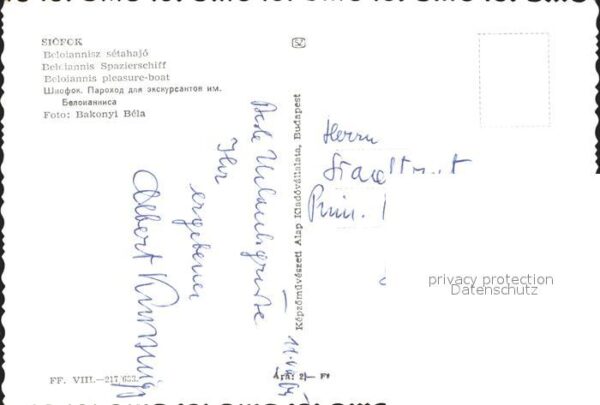 SIÓFOK
Beloiannisz sétahajó
Beloiannis Spazierschiff
Beloiannis pleasure-boat
Шиофок. Пароход для экскурсантов им.
Белоианниса
Foto: Bakonyi Béla
Beste Urlaubsgrüsse
Ihr
ergebener
Albert
Képzőművészeti Alap Kiadóvállalata, Budapest
Herrn
Stadt
Prim.
privacy protection
Datenschutz
FF. VIII.—217/653.
Ára: 2,— Ft